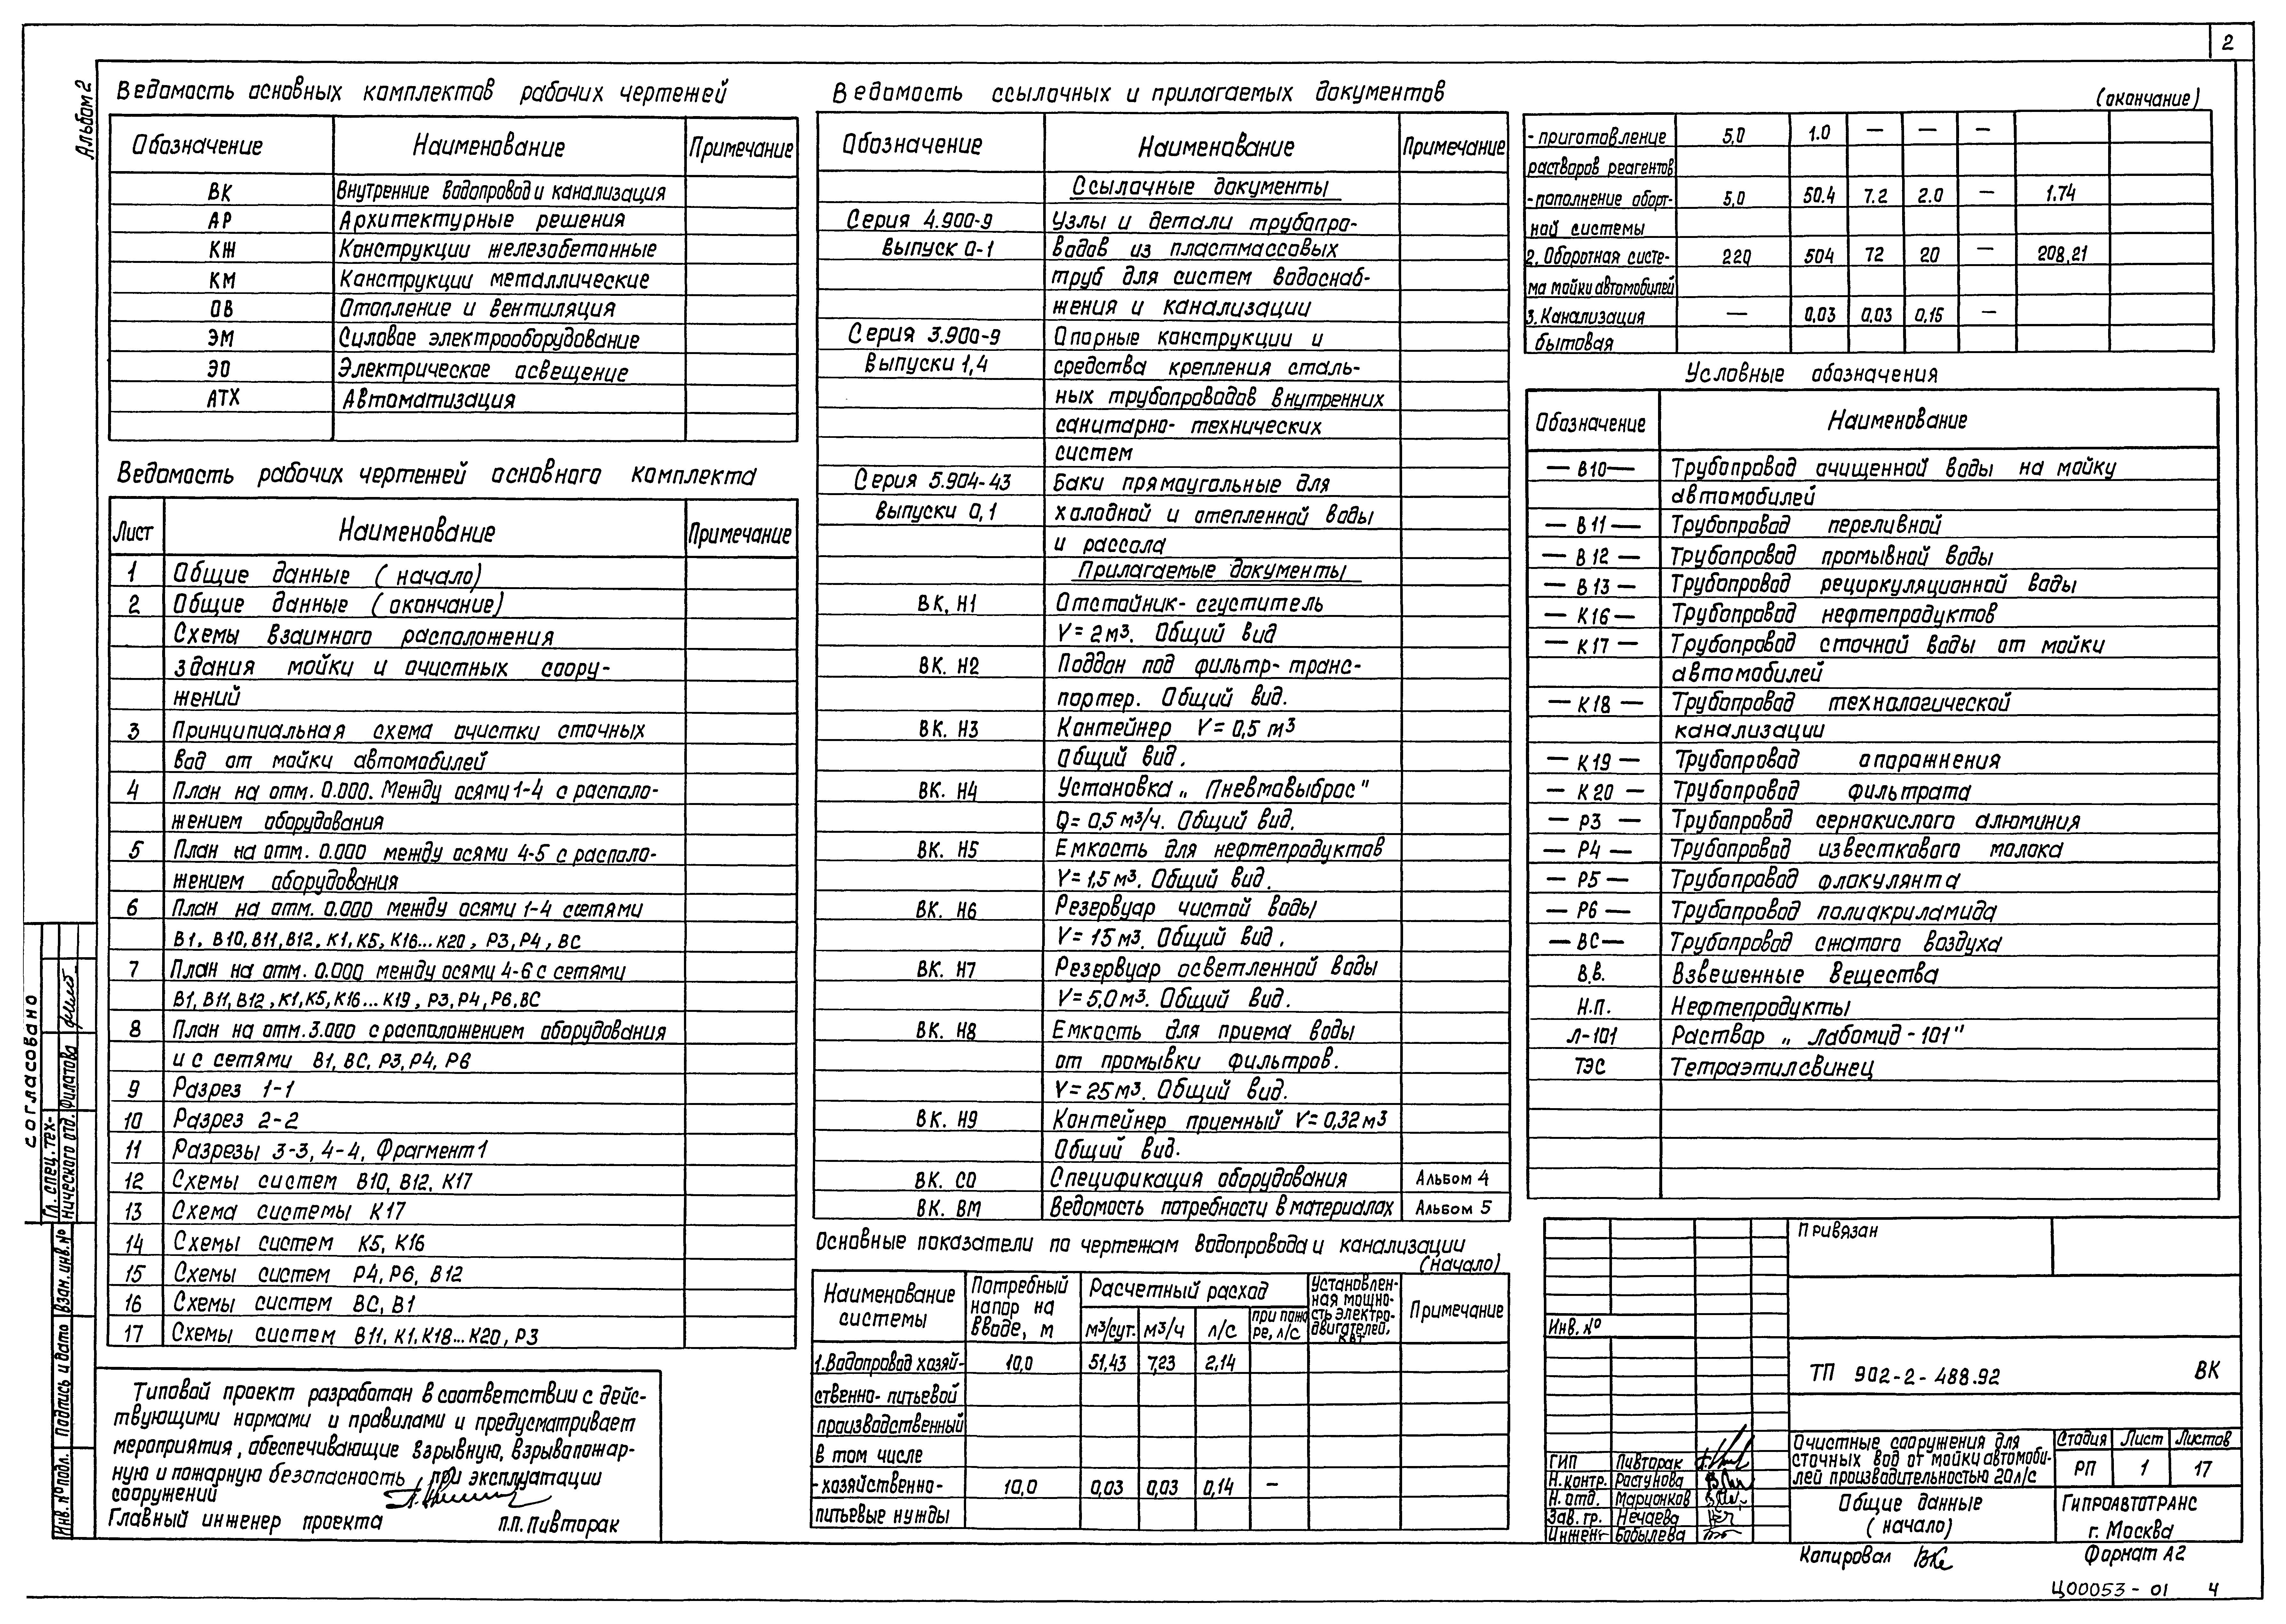 2
Альбом 2
Ведомость основных комплектов рабочих чертежей
Обозначение Наименование Примечание
ВК Внутренние водопровод и канализация
АР Архитектурные решения
КЖ Конструкции железобетонные
КМ Конструкции металлические
ОВ Отопление и вентиляция
ЭМ Силовое электрооборудование
ЭО Электрическое освещение
АТХ Автоматизация
Ведомость рабочих чертежей основного комплекта
Лист Наименование Примечание
1 Общие данные (начало)
2 Общие данные (окончание)
Схемы взаимного расположения
здания мойки и очистных соору-
жений
3 Принципиальная схема очистки сточных
вод от мойки автомобилей
4 План на отм. 0.000. Между осями 1-4 с располо-
жением оборудования
5 План на отм. 0.000 между осями 4-5 с располо-
жением оборудования
6 План на отм. 0.000 между осями 1-4 с сетями
В1, В10, В11, В12, К1, К5, К16...К20, Р3, Р4, ВС
7 План на отм. 0.000 между осями 4-6 с сетями
В1, В11, В12, К1, К5, К16...К19, Р3, Р4, Р6, ВС
8 План на отм. 3.000 с расположением оборудования
и с сетями В1, ВС, Р3, Р4, Р6
9 Разрез 1-1
10 Разрез 2-2
11 Разрезы 3-3, 4-4, Фрагмент 1
12 Схемы систем В10, В12, К17
13 Схема системы К17
14 Схемы систем К5, К16
15 Схемы систем Р4, Р6, В12
16 Схемы систем ВС, В1
17 Схемы систем В11, К1, К18...К20, Р3
Типовой проект разработан в соответствии с дейс-
твующими нормами и правилами и предусматривает
мероприятия, обеспечивающие взрывную, взрывопожар-
ную и пожарную безопасность при эксплуатации
сооружений
Главный инженер проекта П.П. Пивторак
Ведомость ссылочных и прилагаемых документов
Обозначение Наименование Примечание
Ссылочные документы
Серия 4.900-9 Узлы и детали трубопро-
выпуск 0-1 водов из пластмассовых
труб для систем водоснаб-
жения и канализации
Серия 3.900-9 Опорные конструкции и
Выпуски 1,4 средства крепления сталь-
ных трубопроводов внутренних
санитарно-технических
систем
Серия 5.904-43 Баки прямоугольные для
выпуски 0,1 холодной и отепленной воды
и рассола
Прилагаемые документы
ВК, Н1 Отстойник-сгуститель
V= 2м³. Общий вид
ВК. Н2 Поддон под фильтр-транс-
портер. Общий вид.
ВК. Н3 Контейнер V= 0,5 м³
Общий вид.
ВК. Н4 Установка „Пневмовыброс"
Q= 0,5 м³/ч. Общий вид.
ВК. Н5 Емкость для нефтепродуктов
V= 1,5м³. Общий вид.
ВК. Н6 Резервуар чистой воды
V= 15м³. Общий вид.
ВК. Н7 Резервуар осветленной воды
V= 5,0м³. Общий вид.
ВК. Н8 Емкость для приема воды
от промывки фильтров.
V= 25м³. Общий вид.
ВК. Н9 Контейнер приемный V= 0,32м³
Общий вид.
ВК. СО Спецификация оборудования Альбом 4
ВК. ВМ Ведомость потребности в материалах Альбом 5
Основные показатели по чертежам водопровода и канализации
(начало)
Наименование системы Потребный напор на вводе, м Расчетный расход Установлен-ная мощно-сть электро-двигателей, кВт Примечание
м³/сут. м³/ч л/с при пожа ре, л/с
1. Водопровод хозяй- 10,0 51,43 7,23 2,14
ственно-питьевой
производственный
в том числе
-хозяйственно- 10,0 0,03 0,03 0,14 —
питьевые нужды
(окончание)
-приготовление 5,0 1.0 — — —
растворов реагентов
-пополнение оборт- 5,0 50.4 7.2 2.0 — 1.74
ной системы
2. Оборотная систе- 220 504 72 20 — 208,21
ма мойки автомобилей
3. Канализация — 0,03 0,03 0,15 —
бытовая
Условные обозначения
Обозначение Наименование
— В10 — Трубопровод очищенной воды на мойку
автомобилей
— В11 — Трубопровод переливной
— В12 — Трубопровод промывной воды
— В13 — Трубопровод рециркуляционной воды
— К16 — Трубопровод нефтепродуктов
— К17 — Трубопровод сточной воды от мойки
автомобилей
— К18 — Трубопровод технологической
канализации
— К19 — Трубопровод опорожнения
— К20 — Трубопровод фильтрата
— Р3 — Трубопровод сернокислого алюминия
— Р4 — Трубопровод известкового молока
— Р5 — Трубопровод флокулянта
— Р6 — Трубопровод полиакриламида
— ВС — Трубопровод сжатого воздуха
В.В. Взвешенные вещества
Н.П. Нефтепродукты
Л-101 Раствор „Лабомид-101"
ТЭС Тетраэтилсвинец
Привязан
Инв. №
ТП 902-2-488.92 ВК
Очистные сооружения для
сточных вод от мойки автомоби-
лей производительностью 20л/с
Стадия Лист Листов
РП 1 17
ГИП Пивторак
Н.контр. Растунова
Н.отд. Марионков
Зав. гр. Нечаева
Инженер Бобылева
Общие данные
(начало)
ГИПРОАВТОТРАНС
г. Москва
Копировал
Формат А2
Ц00053-01 4
согласовано
Гл. спец. тех-
нического отд. Филатова
Взам. инв. №
Подпись и дата
Инв. № подл.